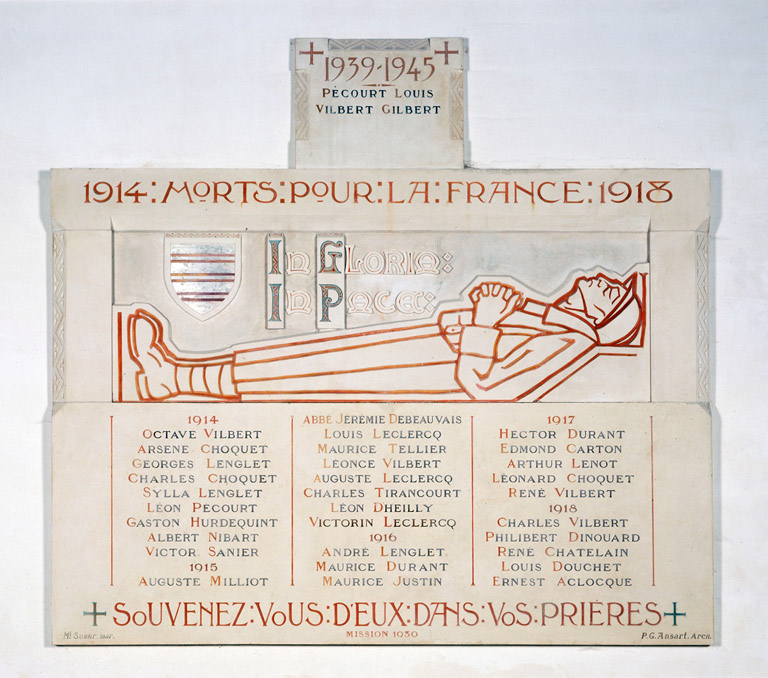 1939-1945
PÉCOURT LOUIS
VILBERT GILBERT
1914:MORTS:POUR:LA:FRANCE:1918
IN GLORIA:
IN PACE:
1914
OCTAVE VILBERT
ARSENE CHOQUET
GEORGES LENGLET
CHARLES CHOQUET
SYLLA LENGLET
LÉON PÉCOURT
GASTON HURDEQUINT
ALBERT NIBART
VICTOR SANIER
1915
AUGUSTE MILLIOT
ABBÉ JÉRÉMIE DEBEAUVAIS
LOUIS LECLERCQ
MAURICE TELLIER
LÉONCE VILBERT
AUGUSTE LECLERCQ
CHARLES TIRANCOURT
LÉON DHEILLY
VICTORIN LECLERCQ
1916
ANDRÉ LENGLET
MAURICE DURANT
MAURICE JUSTIN
1917
HECTOR DURANT
EDMOND CARTON
ARTHUR LENOT
LÉONARD CHOQUET
RENÉ VILBERT
1918
CHARLES VILBERT
PHILIBERT DINOUARD
RENÉ CHATELAIN
LOUIS DOUCHET
ERNEST ACLOCQUE
SOUVENEZ:VOUS:D'EUX:DANS:VOS:PRIÈRES
MISSION 1930
P.G. Ansart. Arch.